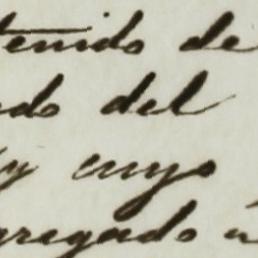 tenido de
do del
y cuyo
gregado